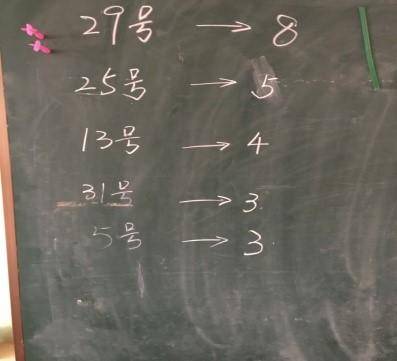 29号 → 8
25号 → 5
13号 → 4
31号 → 3
5号 → 3